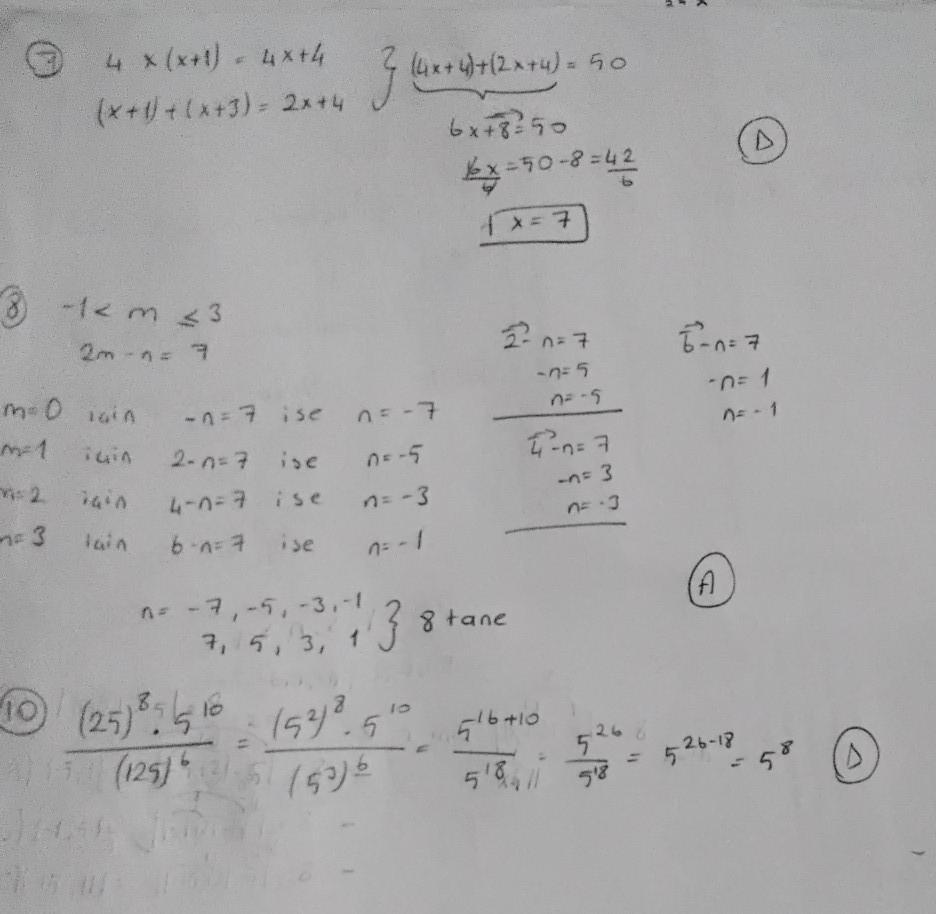 7 4 x (x+1) = 4x+4 } (4x+4)+(2x+4) = 50
(x+1)+(x+3) = 2x+4
6x+8=50
6x/6 = 50-8 = 42/6
x = 7
D
8 -1 < m ≤ 3
2m - n = 7
m=0 için -n=7 ise n=-7
m=1 için 2-n=7 ise n=-5
m=2 için 4-n=7 ise n=-3
m=3 için 6-n=7 ise n=-1
2-n=7
-n=5
n=-5
4-n=7
-n=3
n=-3
6-n=7
-n=1
n=-1
A
n= -7, -5, -3, -1 } 8 tane
7, 5, 3, 1
10 (25)^8 . 5^10 / (125)^6 = (5^2)^8 . 5^10 / (5^3)^6 = 5^16+10 / 5^18 = 5^26 / 5^18 = 5^26-18 = 5^8 D